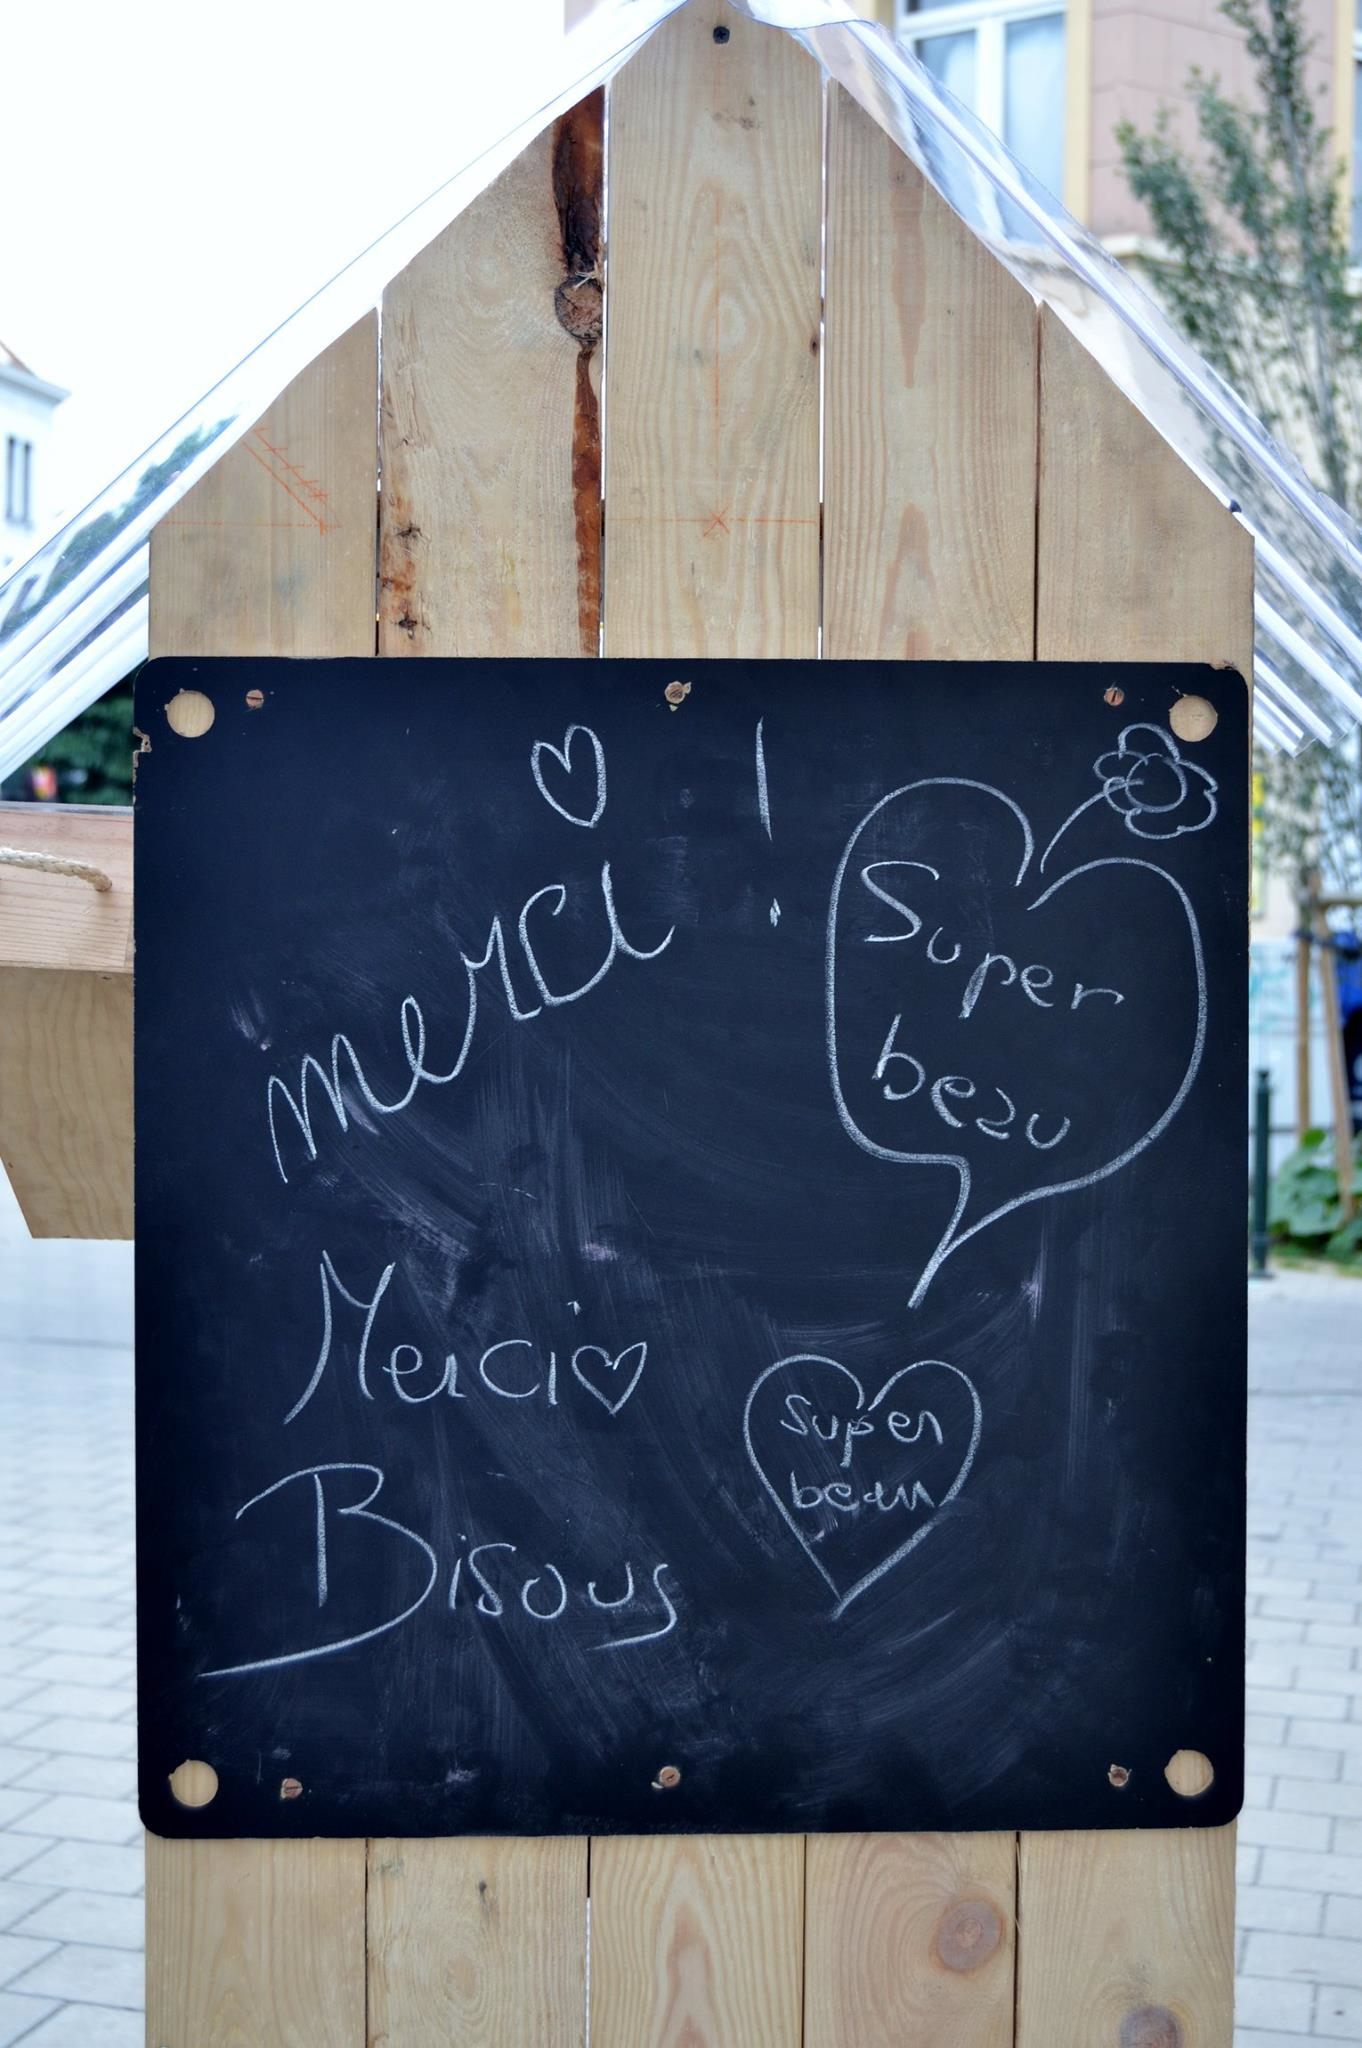 merci !
Super
beau
Merci
Super
beau
Bisous